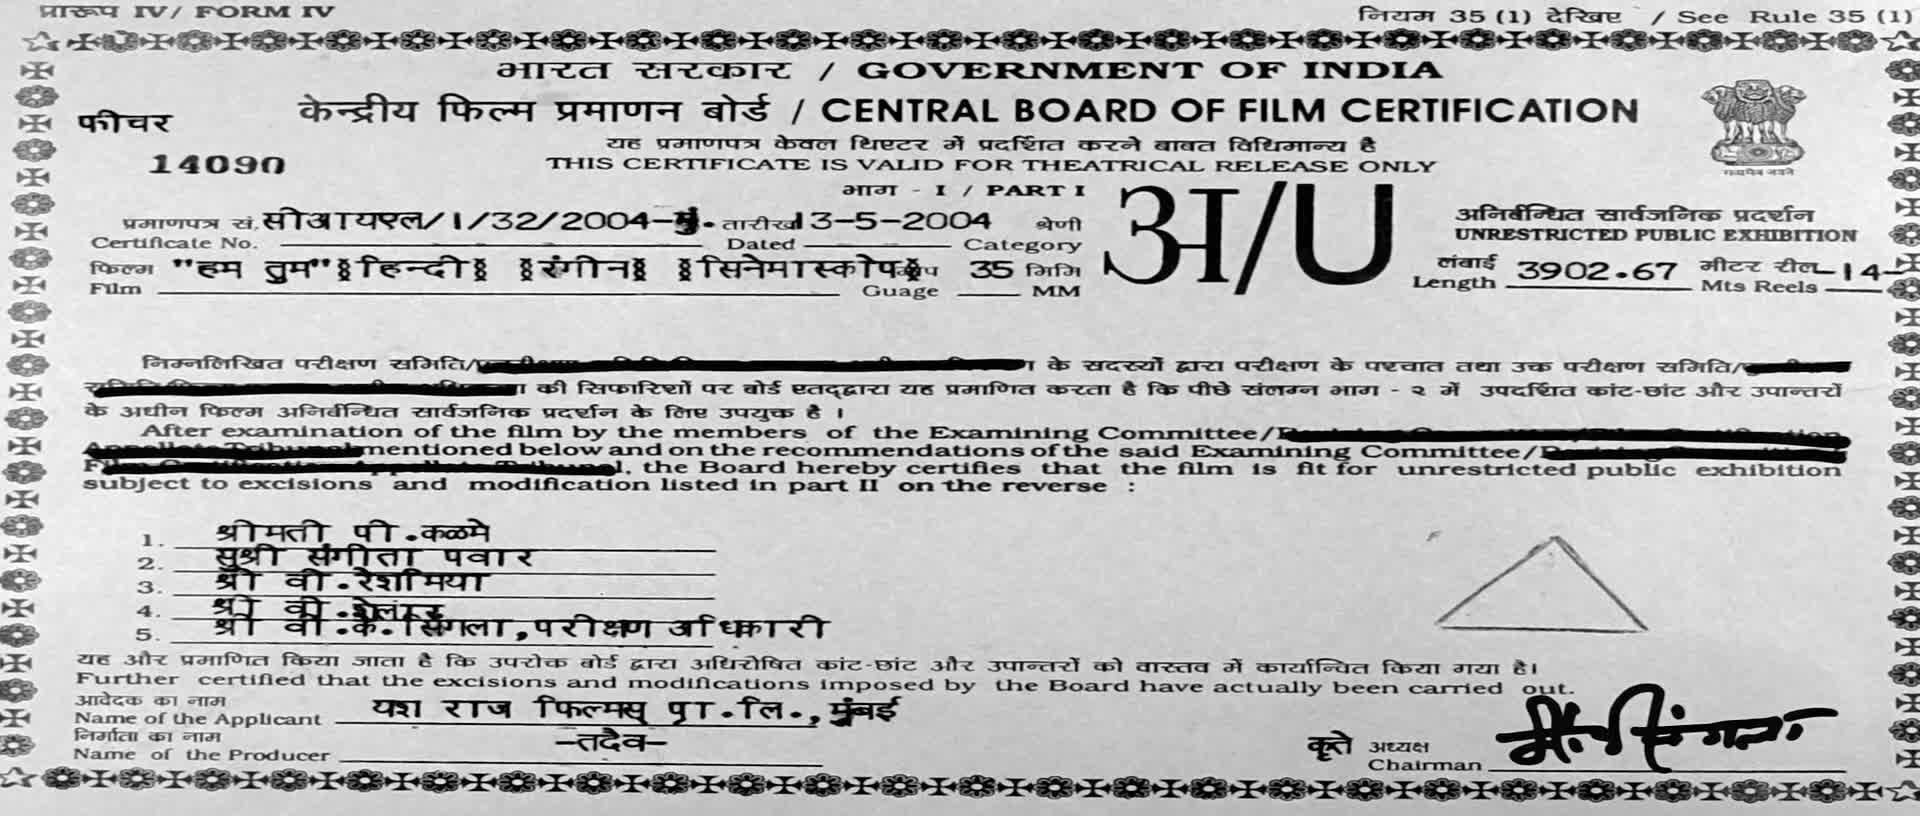 प्रारूप IV/ FORM IV
नियम 35 (1) देखिए / See Rule 35 (1)
भारत सरकार / GOVERNMENT OF INDIA
फीचर
केन्द्रीय फिल्म प्रमाणन बोर्ड / CENTRAL BOARD OF FILM CERTIFICATION
यह प्रमाणपत्र केवल थिएटर में प्रदर्शित करने बाबत विधिमान्य है
14090
THIS CERTIFICATE IS VALID FOR THEATRICAL RELEASE ONLY
सत्यमेव जयते
भाग - I / PART I
प्रमाणपत्र सं. सीआयएल/1/32/2004-मुं. तारीख 13-5-2004 श्रेणी
Certificate No. Dated Category
अ/U
अनिर्बन्धित सार्वजनिक प्रदर्शन
UNRESTRICTED PUBLIC EXHIBITION
फिल्म "हम तुम" हिन्दी रंगीन सिनेमास्कोप 35 मिमि
Film Guage MM
लंबाई 3902.67 मीटर रील -14-
Length Mts Reels
निम्नलिखित परीक्षण समिति/ के सदस्यों द्वारा परीक्षण के पश्चात तथा उक्त परीक्षण समिति/
की सिफारिशों पर बोर्ड एतद्द्वारा यह प्रमाणित करता है कि पीछे संलग्न भाग - २ में उपदर्शित कांट-छांट और उपान्तरों
के अधीन फिल्म अनिर्बन्धित सार्वजनिक प्रदर्शन के लिए उपयुक्त है ।
After examination of the film by the members of the Examining Committee/
mentioned below and on the recommendations of the said Examining Committee/
, the Board hereby certifies that the film is fit for unrestricted public exhibition
subject to excisions and modification listed in part II on the reverse :
1. श्रीमती पी.कळमे
2. सुश्री संगीता पवार
3. श्री वी.रेशमिया
4. श्री वी.शेलार
5. श्री वी.के.सिंगला,परीक्षण अधिकारी
यह और प्रमाणित किया जाता है कि उपरोक्त बोर्ड द्वारा अधिरोषित कांट-छांट और उपान्तरों को वास्तव में कार्यान्वित किया गया है।
Further certified that the excisions and modifications imposed by the Board have actually been carried out.
आवेदक का नाम यश राज फिल्मस् प्रा.लि., मुंबई
Name of the Applicant
निर्माता का नाम -तदैव-
Name of the Producer
कृते अध्यक्ष
Chairman